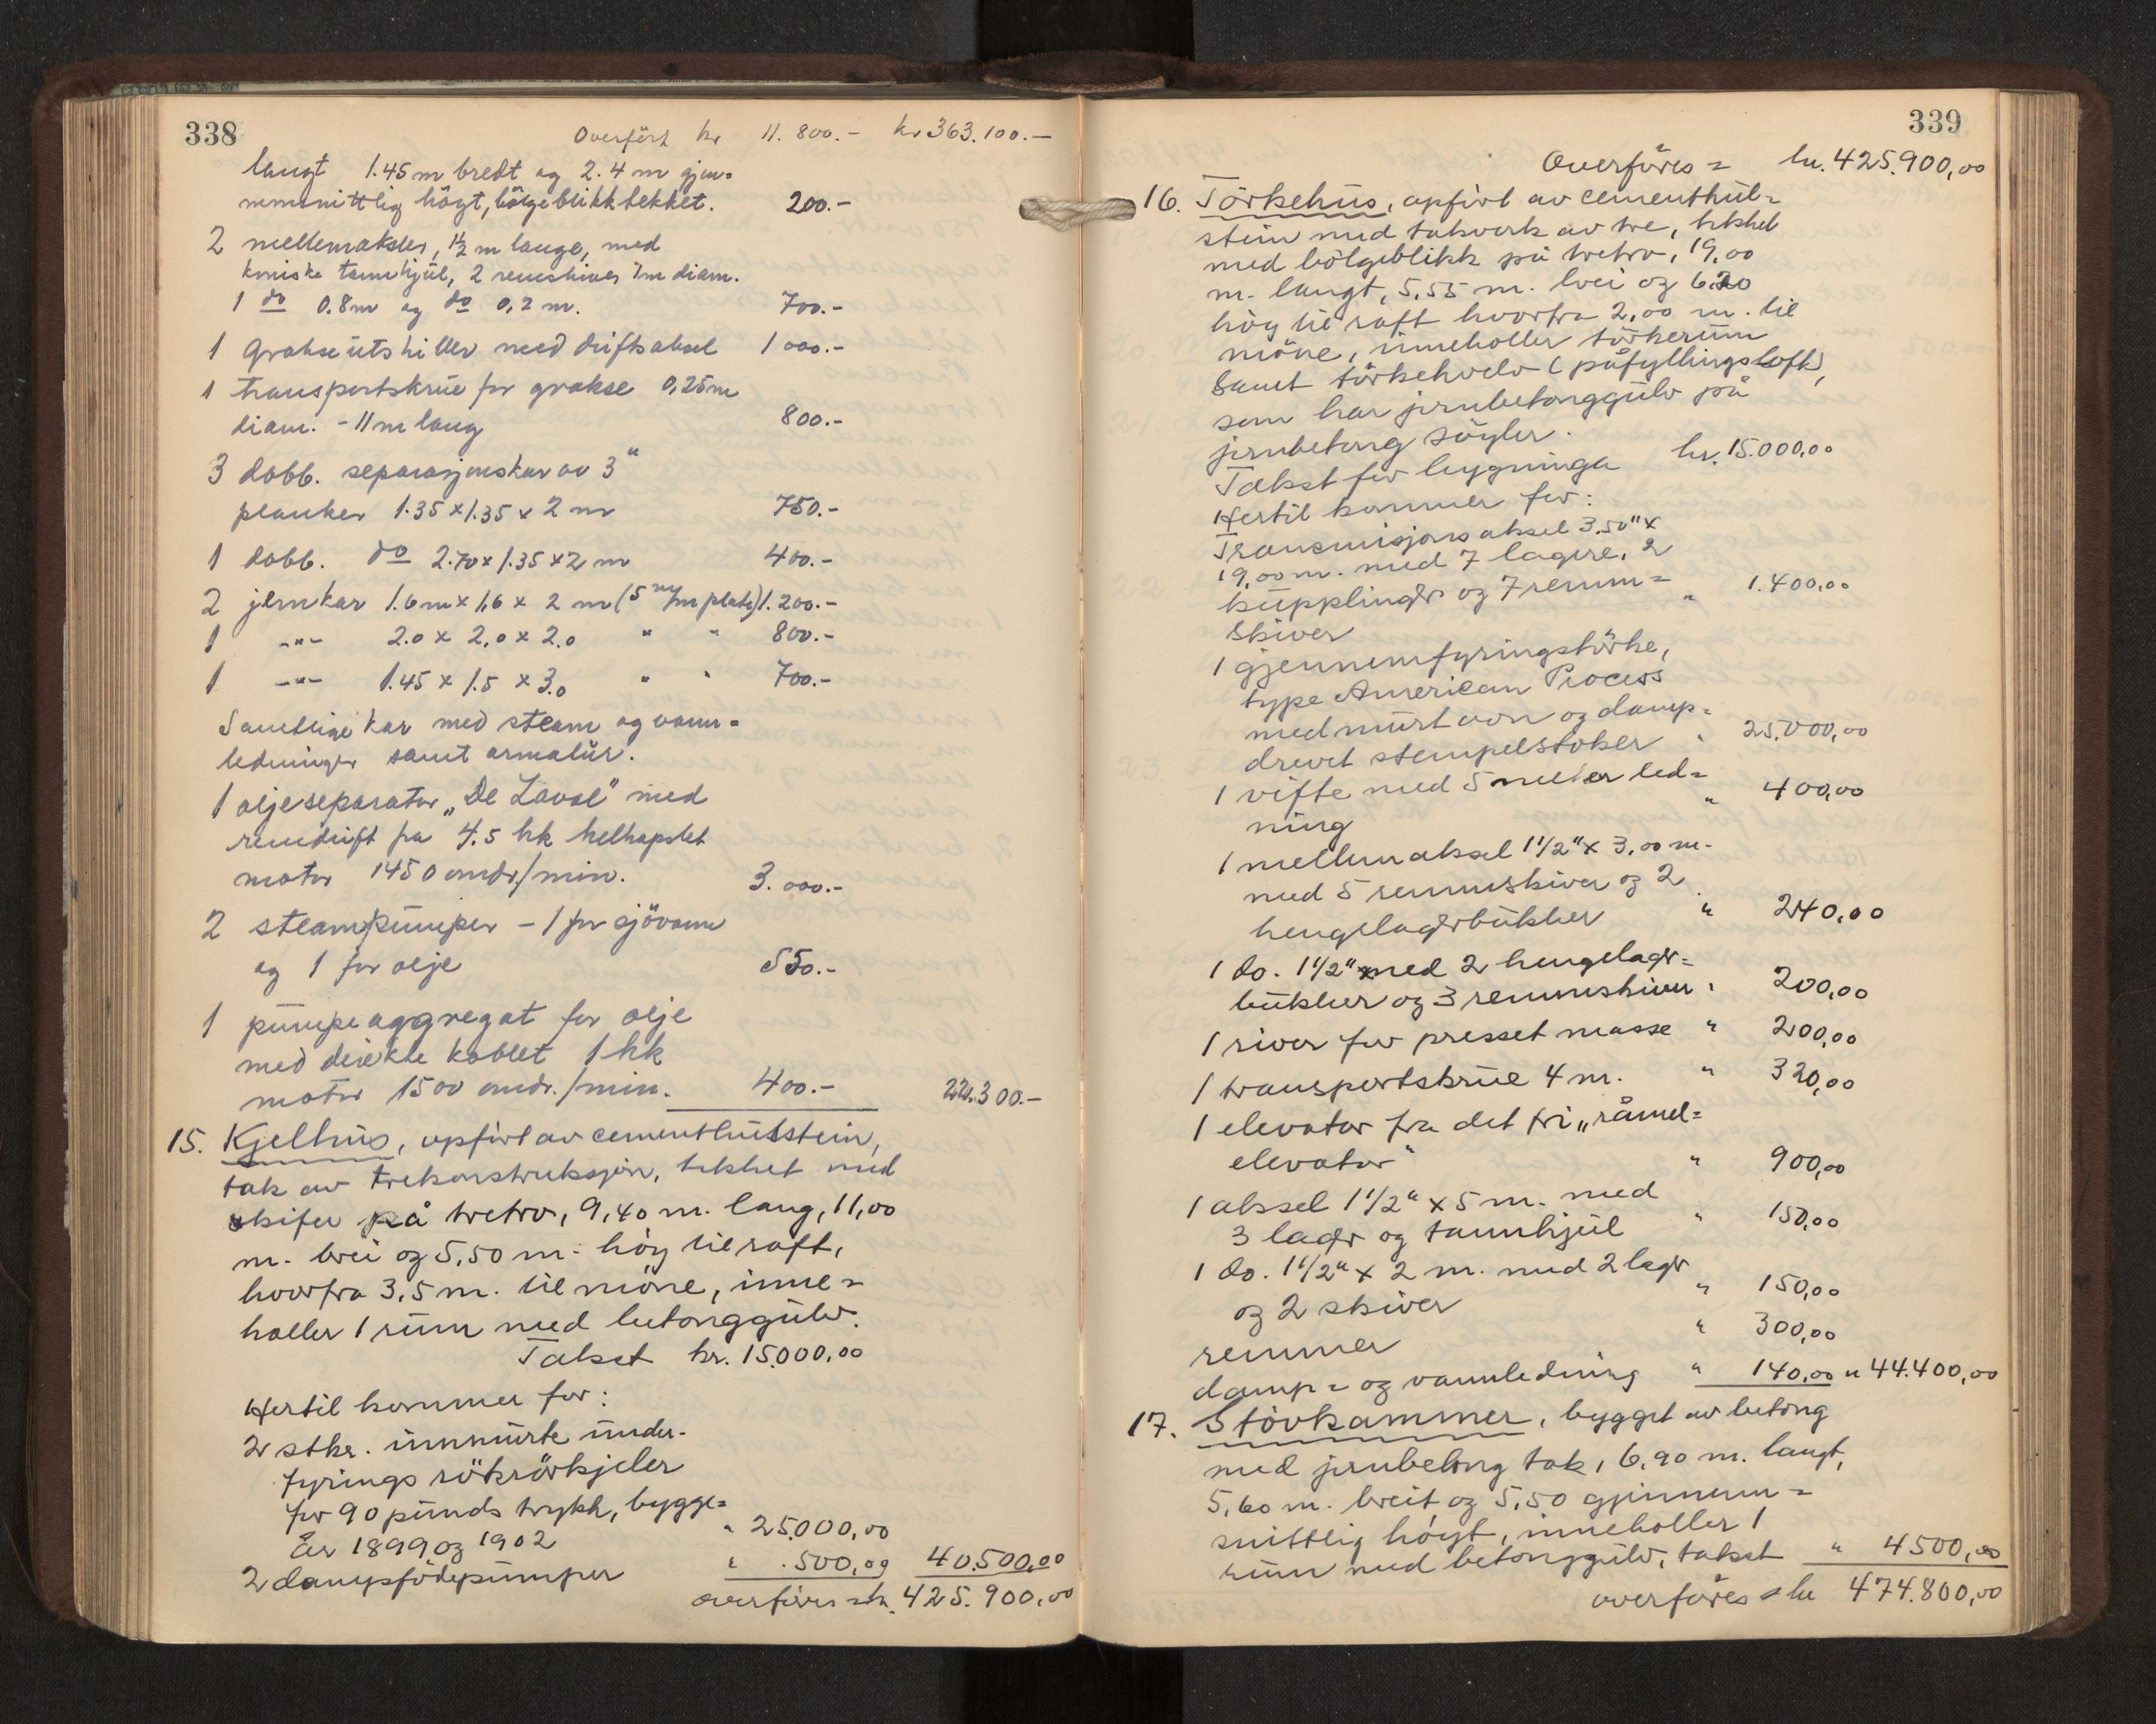 338
Overført kr 11.800.- kr 363.100.-
langt 1.45 m bredt og 2.4 m gjen=
nemsnittlig högt, bölgeblikktekket. 200.-
2 mellemaksler, 1½ m lange, med
koniske tannhjül, 2 remskiver 1m diam.
1 do 0.8m og do 0,2 m. 700.-
1 Grakseutskiller med driftsaksel 1000.-
1 transportskrue for grakse 0,25m
diam. - 11 m lang 800.-
3 dobb. separasjonskar av 3"
planker 1.35 x 1.35 x 2 m 750.-
1 dobb. do 2.70 x 1.35 x 2 m 400.-
2 jernkar 1.6 m x 1,6 x 2 m (5 m/m plate) 1.200.-
1 -"- 2.0 x 2,0 x 2.0 " " 800.-
1 -"- 1.45 x 1.5 x 3.0 " " 700.-
Samtlige kar med steam og vann=
ledninger samt armatür.
1 oljeseparator "De Laval" med
remdrift fra 4.5 hk helkapslet
motor 1450 omdr./min. 3.000.-
2 steampümper - 1 for sjövann
og 1 for olje 550.-
1 pümpeaggregat for olje
med direkte koblet 1 hk
motor 1500 omdr./min. 400.- 22.300.-
15. Kjelhüs, opfört av cementhülstein,
tak av trekonstruksjon, tekket med
skifer på tretro, 9,40 m. lang, 11,00
m. brei og 5,50 m. höy til raft,
hvorfra 3,5 m. til möne, inne=
holler 1 rüm med betonggülv.
Takst kr. 15.000,00
Hertil kommer for:
2 stkr. innmürte ünder-
fyrings rökrörkjeler
for 90 pünds trykk, bygge=
År 1899 og 1902 " 25.000,00
2 dampfödepümper " 500,00 40.500,00
overföres = kr. 425.900,00
339
Overföres = kr. 425.900,00
16. Törkehüs, opfört av cementhül=
stein med takverk av tre, tekket
med bölgeblikk på tretro, 19,00
m. langt, 5,55 m. brei og 6,20
höy til raft hvorfra 2,00 m. til
möne, inneholler törkerüm
samt törkehvelv (påfyllingsloft),
som har jernbetonggülv på
jernbetong söyler.
Takst for bygninga kr. 15.000,00
Hertil kommer for:
Transmisjons aksel 3,50" x
19,00 m. med 7 lagere, 2
küpplinger og 7 remm=
skiver " 1.400,00
1 gjennemfyringstörke,
type American Process
med mürt ovn og damp=
drevet stempelstoker " 25.000,00
1 vifte med 5 meter led=
ning " 400,00
1 mellemaksel 1 1/2" x 3,00 m.
med 5 remmskiver og 2
hengelagerbükker " 240,00
1 do. 1 1/2" med 2 hengelager=
bükker og 3 remmskiver " 200,00
1 river for presset masse " 200,00
1 transportskrüe 4 m. " 320,00
1 elevator fra det fri "råmel=
elevator" " 900,00
1 aksel 1 1/2" x 5 m. med
3 lager og tannhjül " 150,00
1 do. 1 1/2" x 2 m. med 2 lager
og 2 skiver " 150,00
remmer " 300,00
damp= og vannledning " 140,00 " 44.400,00
17. Stövkammer, bygget av betong
med jernbetong tak, 6,90 m. langt,
5,60 m. breit og 5,50 gjennem=
snittlig höyt, inneholler 1
rüm med betonggülv, takst " 4500,00
overföres = kr 474.800,00